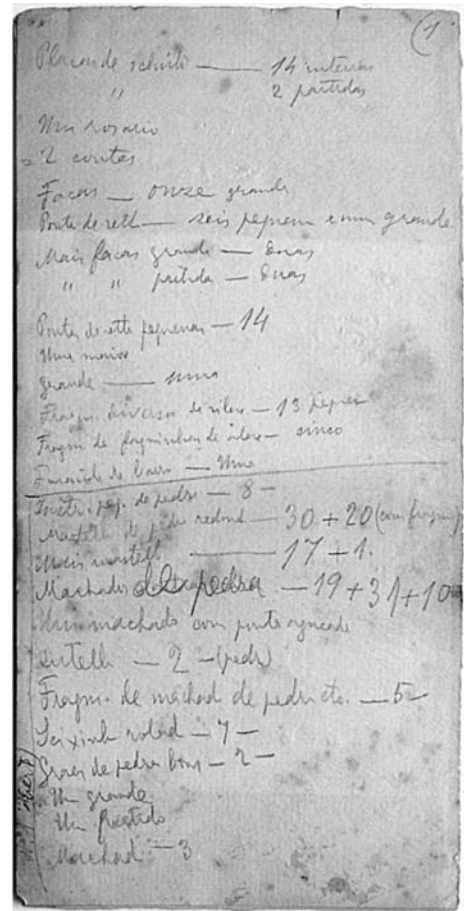 (1
Placas de schisto — 14 inteiras
" 2 partidas
Um rosario
= 2 contas
Facas — onze grande
Ponta de sett — seis pequen e um grande
Mais facas grande — Duas
" " partida — Duas
Pontas de sette pequenas — 14
Uma maior
grande — uma
Fragm. diversos de silex — 13 peque
Fragm de faquinhas de silex — cinco
de barro — Uma
Instr. peq. de pedra — 8 —
Martell de pedr redond — 30 + 20 (com fragm)
Mais martell — 17 + 1.
Machados de pedra — 19 + 31 + 10
Um machado com ponta aguçada
— 2 — (pedr)
Fragm. de machad de pedr etc. — 5 —
Seixinh rolad — 7 —
de pedra bons — 2 —
Um grande
Um partido
Machad — 3